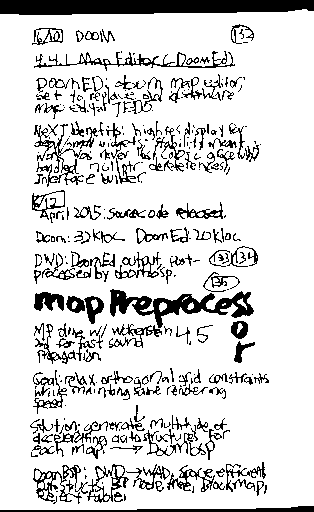 6/10 DOOM 132
4.4.1 Map Editor (DoomEd)
DOOMED: own map editor,
set to replace old
map editor TED5.
NeXT benefits: high res display for
small widgets, stability meant
work was never lost, ObjC gracefully
handled nullptr dereferences,
Interface builder.
6/12
April 2015: source code released.
Doom: 32kloc DoomEd: 20kloc
DWD: DoomEd output, post- 133 134
processed by doombsp.
135
map Preprocessor
MP done w/ Wolfenstein 4,5
3d for fast sound
propagation.
Goal: relax orthogonal grid constraints
while maintaining same rendering
speed.
Solution: generate multitude of
accelerating data structures for
each map. → DoomBSP
DoomBSP: DWD → WAD, space efficient
constructs, BSP node tree, blockmap,
Reject table,